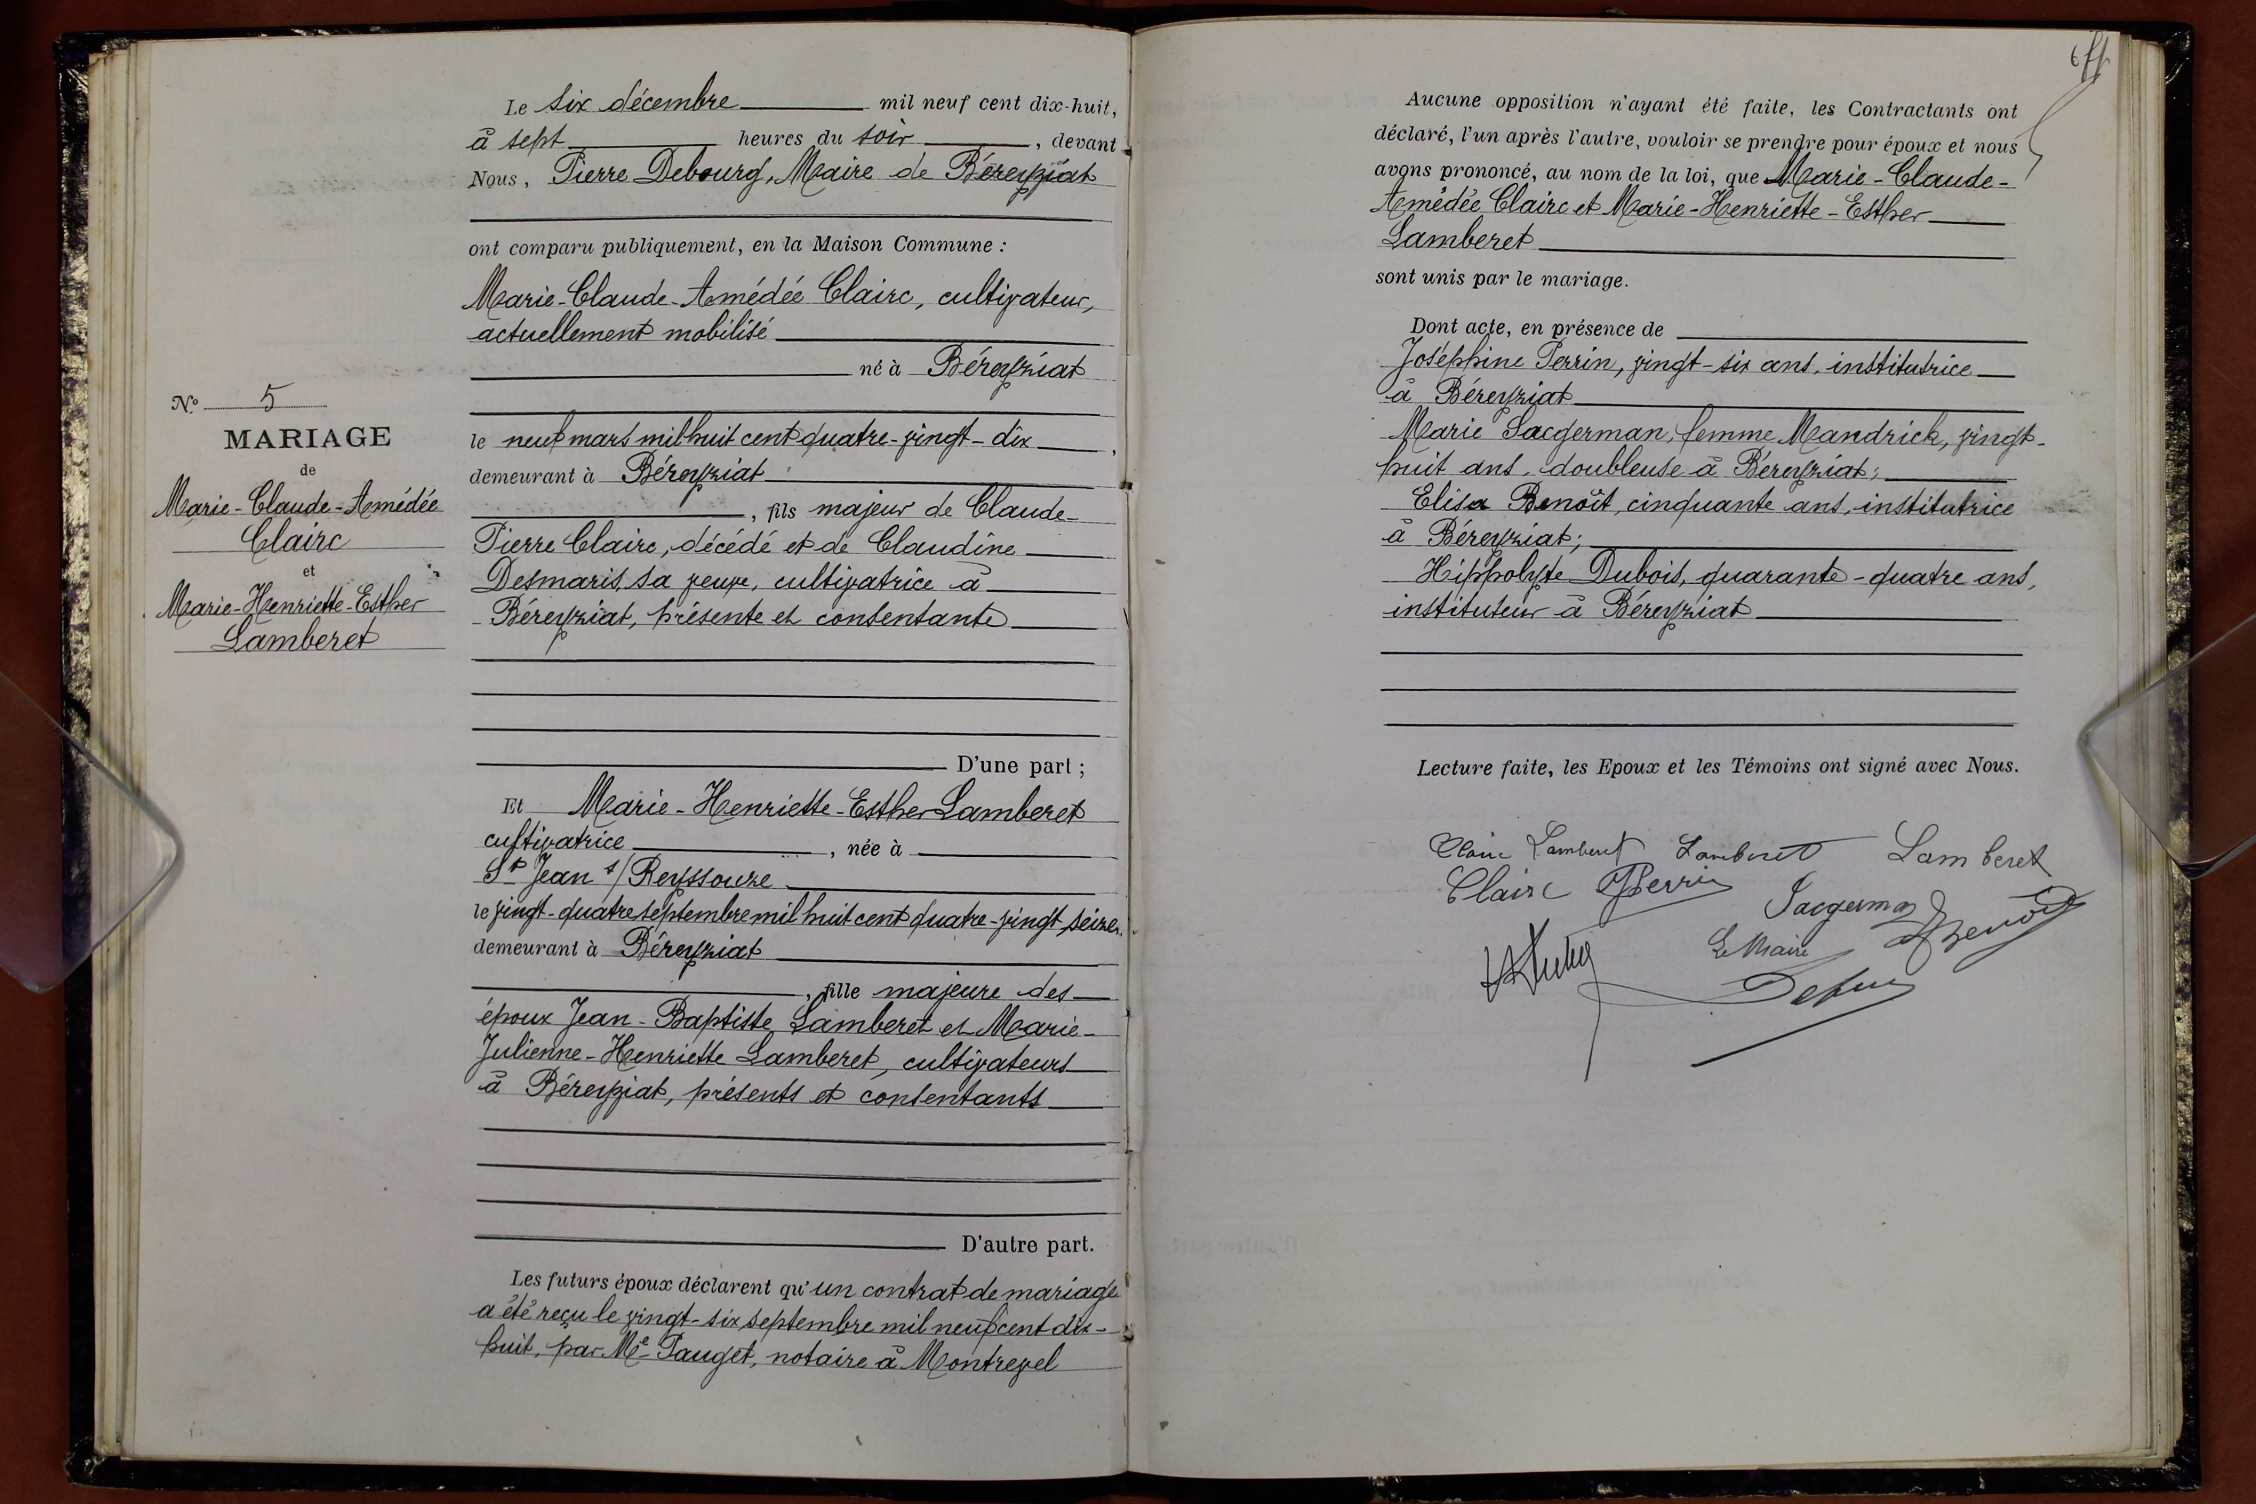 Le six décembre mil neuf cent dix-huit,
à sept heures du soir, devant
Nous, Pierre Debourg, Maire de Béreyziat
ont comparu publiquement, en la Maison Commune :
Marie-Claude-Amédée Clairc, cultivateur,
actuellement mobilisé
né à Béreyziat
le neuf mars mil huit cent quatre-vingt-dix,
demeurant à Béreyziat
, fils majeur de Claude-
Pierre Clairc, décédé et de Claudine
Desmaris, sa veuve, cultivatrice à
Béreyziat, présente et consentante
D'une part ;
Et Marie-Henriette-Esther Lamberet
cultivatrice, née à
St Jean s/ Reyssouze
le vingt-quatre septembre mil huit cent quatre-vingt seize,
demeurant à Béreyziat
, fille majeure des
époux Jean-Baptiste Lamberet et Marie-
Julienne-Henriette Lamberet, cultivateurs
à Béreyziat, présents et consentants
D'autre part.
Les futurs époux déclarent qu'un contrat de mariage
a été reçu le vingt-six septembre mil neuf cent dix-
huit, par Me Pauget, notaire à Montrevel
No 5
MARIAGE
de
Marie-Claude-Amédée
Clairc
et
Marie-Henriette-Esther
Lamberet
Aucune opposition n'ayant été faite, les Contractants ont
déclaré, l'un après l'autre, vouloir se prendre pour époux et nous
avons prononcé, au nom de la loi, que Marie-Claude-
Amédée Clairc et Marie-Henriette-Esther
Lamberet
sont unis par le mariage.
Dont acte, en présence de
Joséphine Perrin, vingt-six ans, institutrice
à Béreyziat
Marie Jacgerman, femme Mandrick, vingt-
huit ans, doubleuse à Béreyziat;
Elisa Benoît, cinquante ans, institutrice
à Béreyziat;
Hippolyte Dubois, quarante-quatre ans,
instituteur à Béreyziat
Lecture faite, les Epoux et les Témoins ont signé avec Nous.
Lamberet Lamberet Lamberet
Clairc JPerrin
Jacgerman
Benoît
Le Maire